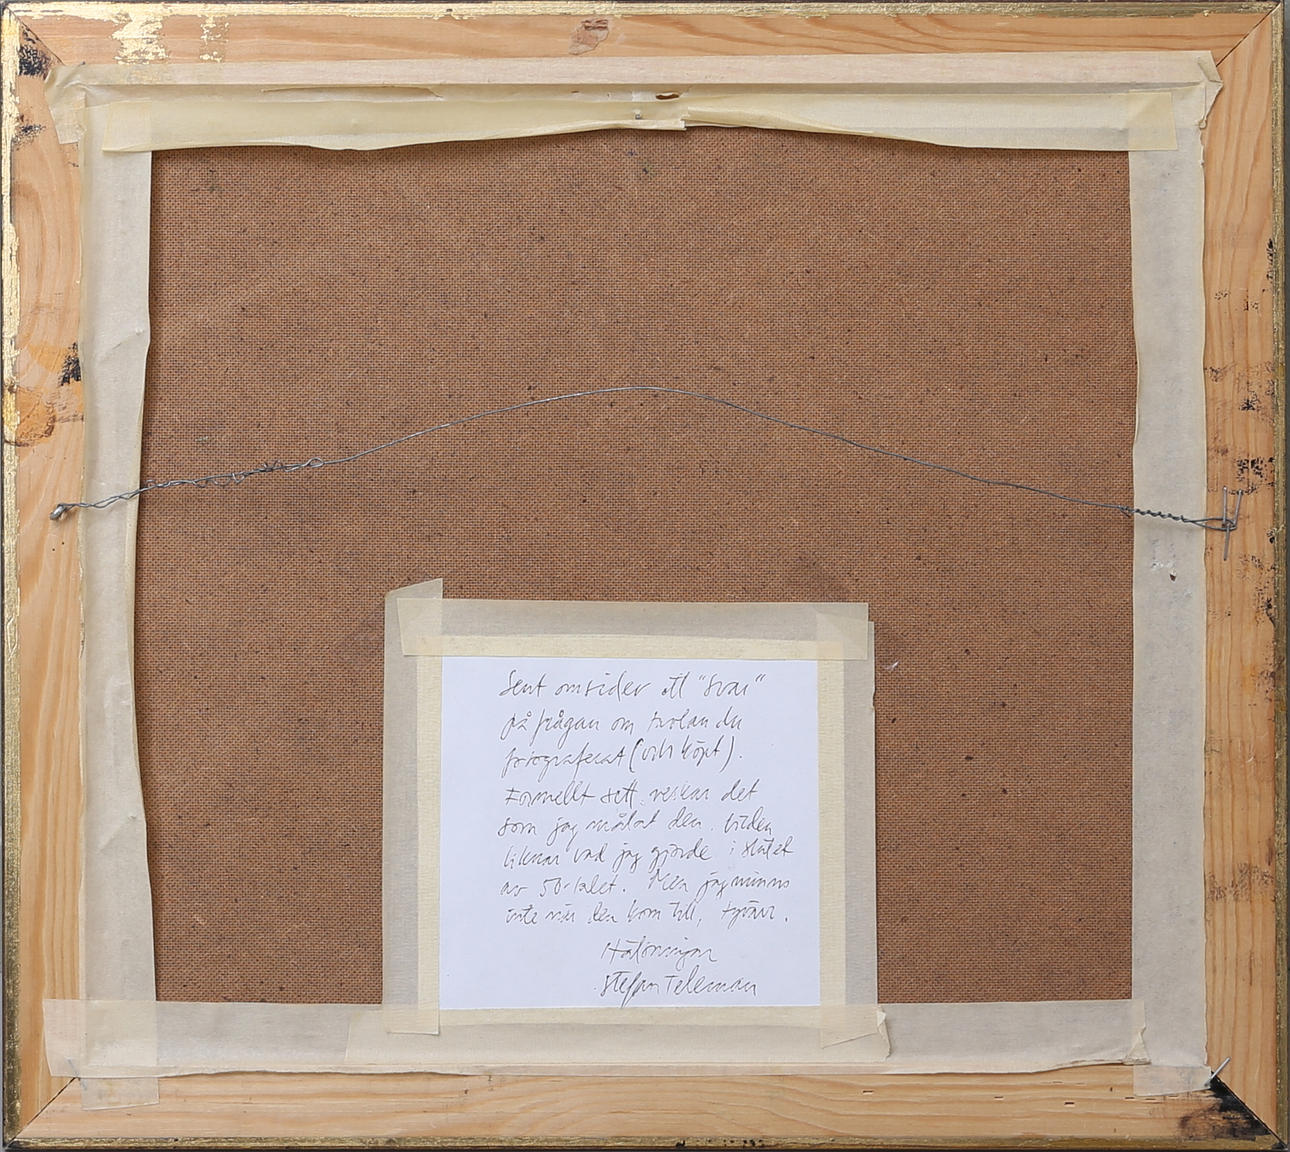 Sent omsider ett "svar"
på frågan om tavlan du
fotograferat (och köpt).
Formellt sett verkar det
som jag målat den. Bilden
liknar vad jag gjorde i slutet
av 50-talet. Men jag minns
inte när den kom till, tyvärr.
Hälsningar
Stefan Teleman